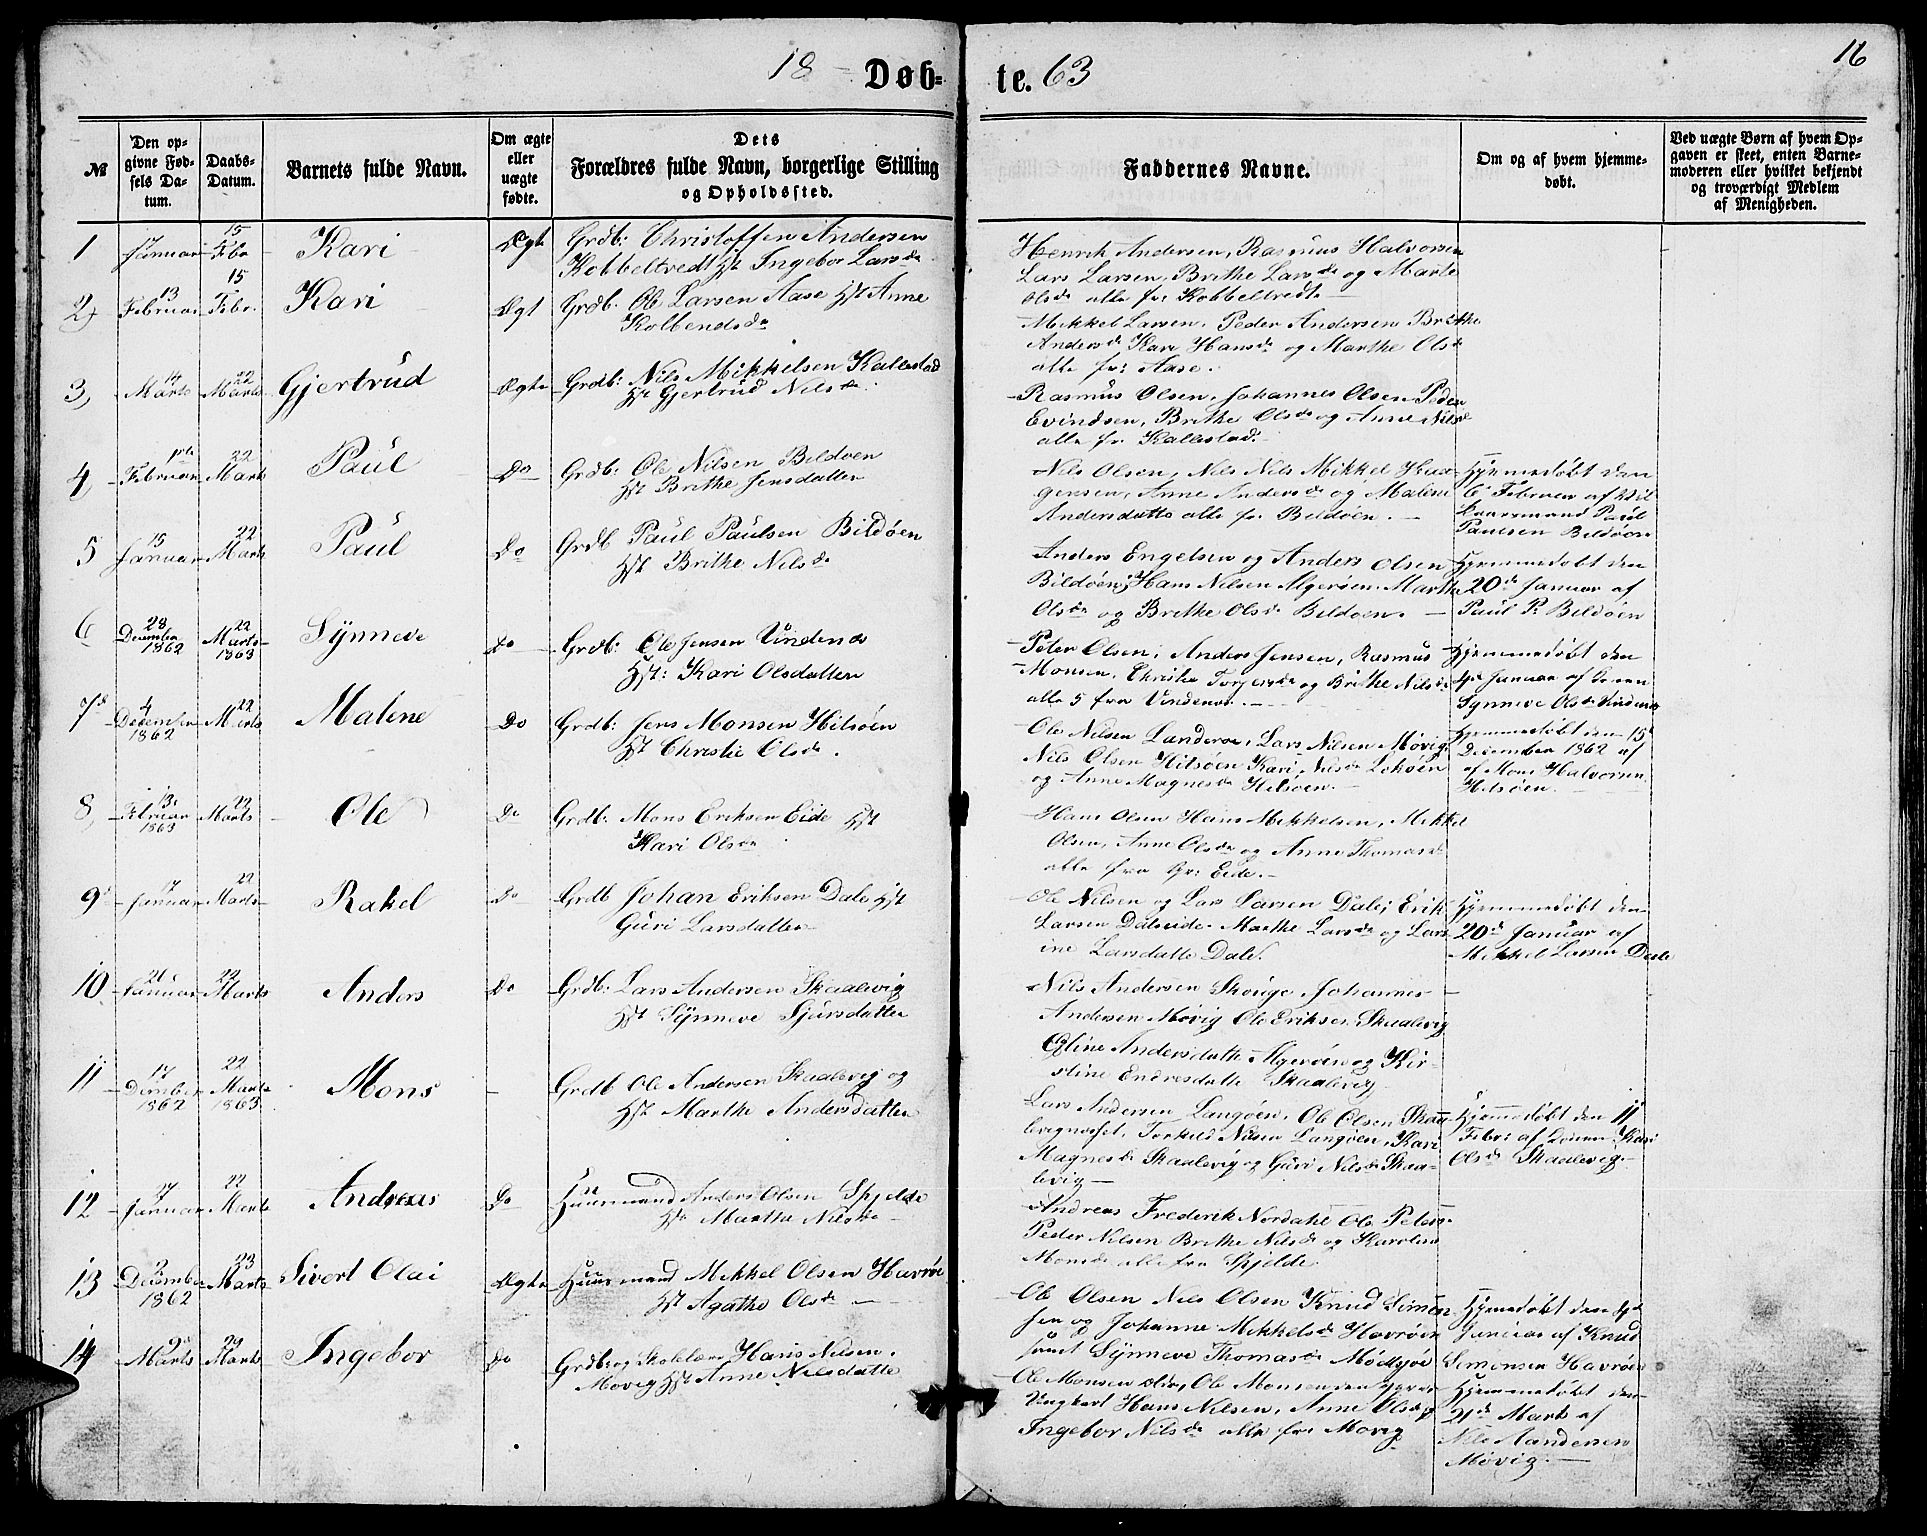 18 Døb-te. 63
16
№
Den op-
givne Fød-
sels Da-
tum.
Daabs-
Datum.
Barnets fulde Navn.
Om ægte
eller
uægte
fødte.
Dets
Forældres fulde Navn, borgerlige Stilling
og Opholdssted.
Faddernes Navne.
Om og af hvem hjemme-
døbt.
Ved uægte Børn af hvem Op-
gaven er skeet, enten Barne-
moderen eller hvilket bekjendt
og troværdigt Medlem
af Menigheden.
1 Januar 15 Febr Kari Ægte Grdb: Christoffer Andersen
Kobbeltvedt Hst Ingebor Larsdr
Henrik Andersen, Rasmus Halvorsen
Lars Larsen, Brithe Larsdr og Marte
Olsdr alle fr: Kobbeltvedt
2, 13 Februar 15 Febr. Kari Ægt Grdb. Ole Larsen Aase Hst Anne
Kolbendsdr
Mikkel Larsen, Peder Andersen Brithe
Andersdr Kari Hansdr og Marthe Olsdr
alle fr: Aase.
3, 14 Marts 22 Marts Gjertrud Ægte Grdb: Nils Mikkelsen Kallestad
Hst Gjertrud Nilsdr.
Rasmus Olsen, Johannes Olsen Peder
Evindsen, Brithe Olsdr og Anne Nilsdr
alle fr Kallestad.
4, Februar 22 Marts Paul Do Grdb: Ole Nilsen Bildøen
Hst Brithe Jensdatter
Nils Olsen, Nils Nils Mikkel Haa-
gensen, Anne Andersdr og Malene
Andersdatte alle fr. Bildøen.
Hjemmedøbt den
6 Februar af
Paul
Paulsen Bildøen
5 15 Januar 22 Marts Paul Do Grdb Paul Paulsen Bildøen
Hst Brithe Nilsdr
Anders Engelsen og Anders Olsen
Bildøen, Hans Nilsen Algerøen Marthe
Olsdr og Brithe Olsdr Bildøen.
Hjemmedøbt den
20de Januar af
Paul P. Bildøen
6 28 Desember 1862 22 Marts 1863 Synneve Do Grdb: Ole Jensen Vindenes
Hst: Kari Olsdatter
Peter Olsen, Anders Jensen, Rasmus
Monsen, Christie Torgersdr og Brithe Nilsdr
alle 5 fra Vindenes.
Hjemmedøbt den
Januar af Konen
Synneve Olsdr Vindenes
7 4 Desember 1862 22 Marts Malene Do Grdb: Jens Monsen Hitsøen
Hst Christie Olsdr.
Ole Nilsen Landerøe, Lars Nilsen Møvig
Nils Olsen Hitsøen Kari Nilsdr Lokøen
og Anne Magnesdr Hitsøen.
Hjemmedøbt den 15
December 1862 af
af Mons Halvorsen
Hitsøen.
8, 13 Februar 1863 22 Marts Ole Do Grdb: Mons Eriksen Eide Hst
Kari Olsdr
Hans Olsen Hans Mikkelsen, Mikkel
Olsen, Anne Olsdr og Anne Thomasdr
alle fra Gr: Eide.
9 17 Januar 22 Marts Rakel Do Grdb Johan Eriksen Dale Hst
Guri Larsdatter
Ole Nilsen og Lars Larsen Dale, Erik
Larsen Dalseide Marthe Larsdr og Lars-
ine Larsdatte Dale.
Hjemmedøbt den
20de Januar af
Mikkel Larsen Dale
10 21 Januar 22 Marts Anders Do Grdb: Lars Andersen Skaalevig
Hst Synneve Sjursdatter
Nils Andersen Skouge Johannes
Andersen Møvig Ole Eriksen Skaalevig
Eline Andersdatte Algerøen og Kir-
stine Endresdatte Skaalevig
11 17 Desember 1862 22 Marts 1863. Mons Grdb Ole Andersen Skaalevig og
Hst Marthe Andersdatter
Lars Andersen Langøen, Ole Olsen Skaa-
levignæset, Torkild Nilsen Langøen, Kari
Magnesdr Skaalevig og Guri Nilsdr Skaa-
levig
Hjemmedøbt den 11
Febr: af Konen Kari
Olsdr Skaalevig
12 Januar 22 Marts Andreas Do Huusmand Anders Olsen Spjelde
Hst Martha Nilsdr
Andreas Frederik Nordahl Ole Peters-
Peder Nilsen Brithe Nilsdr og Karoline
Monsdr alle fra Spjelde.
13 2 Desember 1862 23 Marts Sivert Olai Ægte Huusmand Mikkel Olsen Havrøe
Hst Agathe Olsdr
Ole Olsen Nils Olsen Knud Simon-
sen og Johanne Mikkelsdr Havrøen
samt Synneve Thomasdr
Hjemmedøbt den
Januar af Knud
Simonsen Havrøen
14 Marts 29 Marts Ingebor Do Grdb og Skolelærer Hans Nilsen
Møvig Hst Anne Nilsdatte
Ole Monsen ældr, Ole Monsen den yngre
Ungkarl Hans Nilsen, Anne Olsdr og
Ingebor Nilsdr alle fr: Møvig
Hjemmedøbt den
21de Marts af
Nils Aandersen
Møvig.